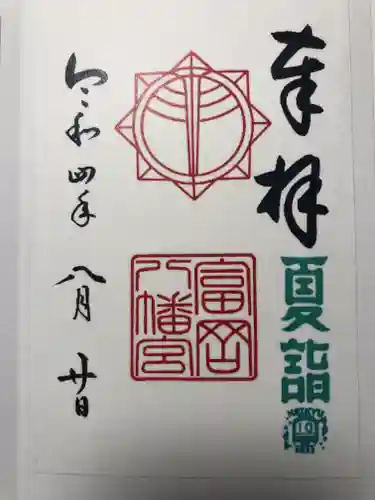 奉拝
夏詣
富岡
八幡宮
令和四年
八月
廿日